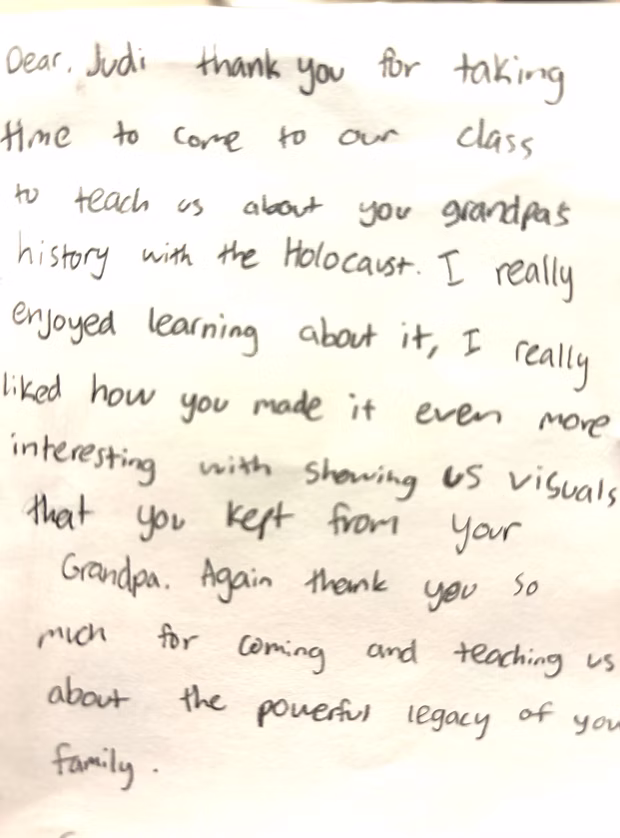 Dear, Judi thank you for taking
time to come to our class
to teach us about you grandpas
history with the Holocaust. I really
enjoyed learning about it, I really
liked how you made it even more
interesting with showing us visuals
that you kept from your
Grandpa. Again thank you so
much for coming and teaching us
about the powerful legacy of you
family.